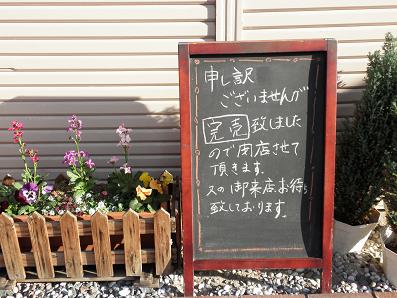 申し訳
ございませんが
完売致しました
ので閉店させて
頂きます.
又の御来店お待ち
致しております.